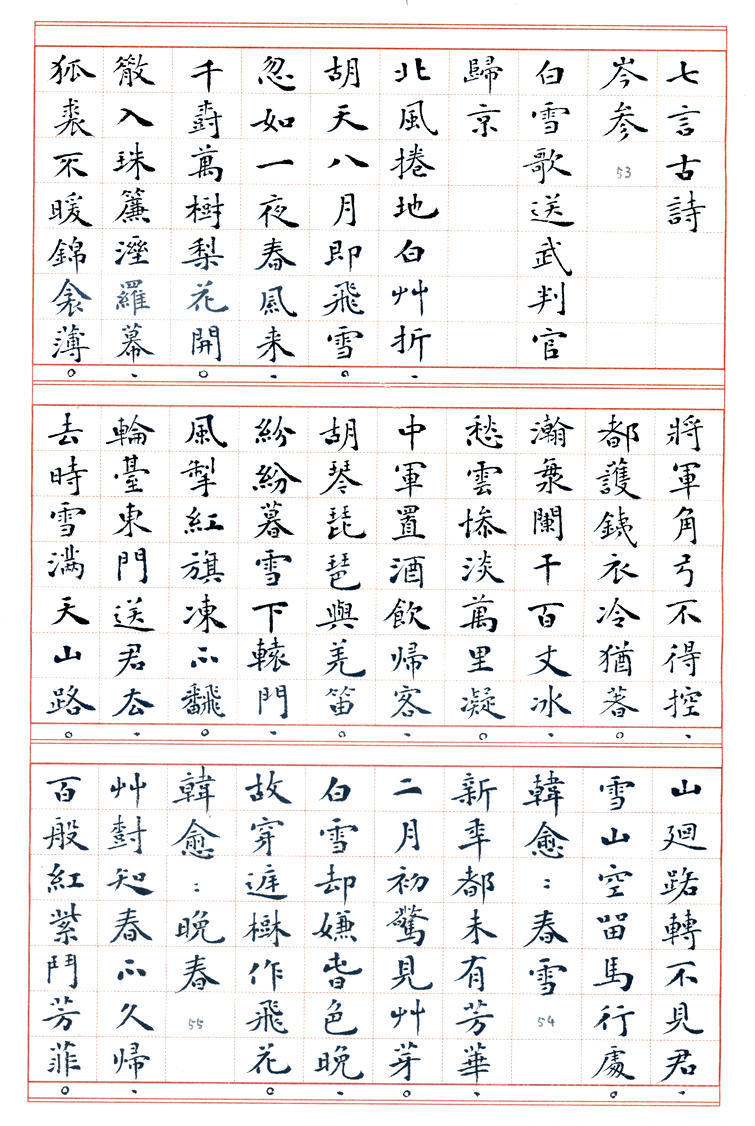 七言古詩
岑参 53
白雪歌送武判官
歸京
北風捲地白艸折、
胡天八月即飛雪。
忽如一夜春風来、
千樹萬樹梨花開。
散入珠簾溼羅幕、
狐裘不暖錦衾薄。
將軍角弓不得控、
都護鐵衣冷猶著。
瀚海闌干百丈冰、
愁雲惨淡萬里凝。
中軍置酒飲帰客、
胡琴琵琶與羌笛。
紛紛暮雪下轅門、
風掣紅旗凍不飜。
輪臺東門送君去、
去時雪満天山路。
山廻路轉不見君、
雪山空留馬行處。
韓愈：春雪 54
新年都未有芳華、
二月初驚見艸芽。
白雪却嫌春色晚、
故穿庭樹作飛花。
韓愈：晚春 55
艸樹知春不久帰、
百般紅紫鬥芳菲。